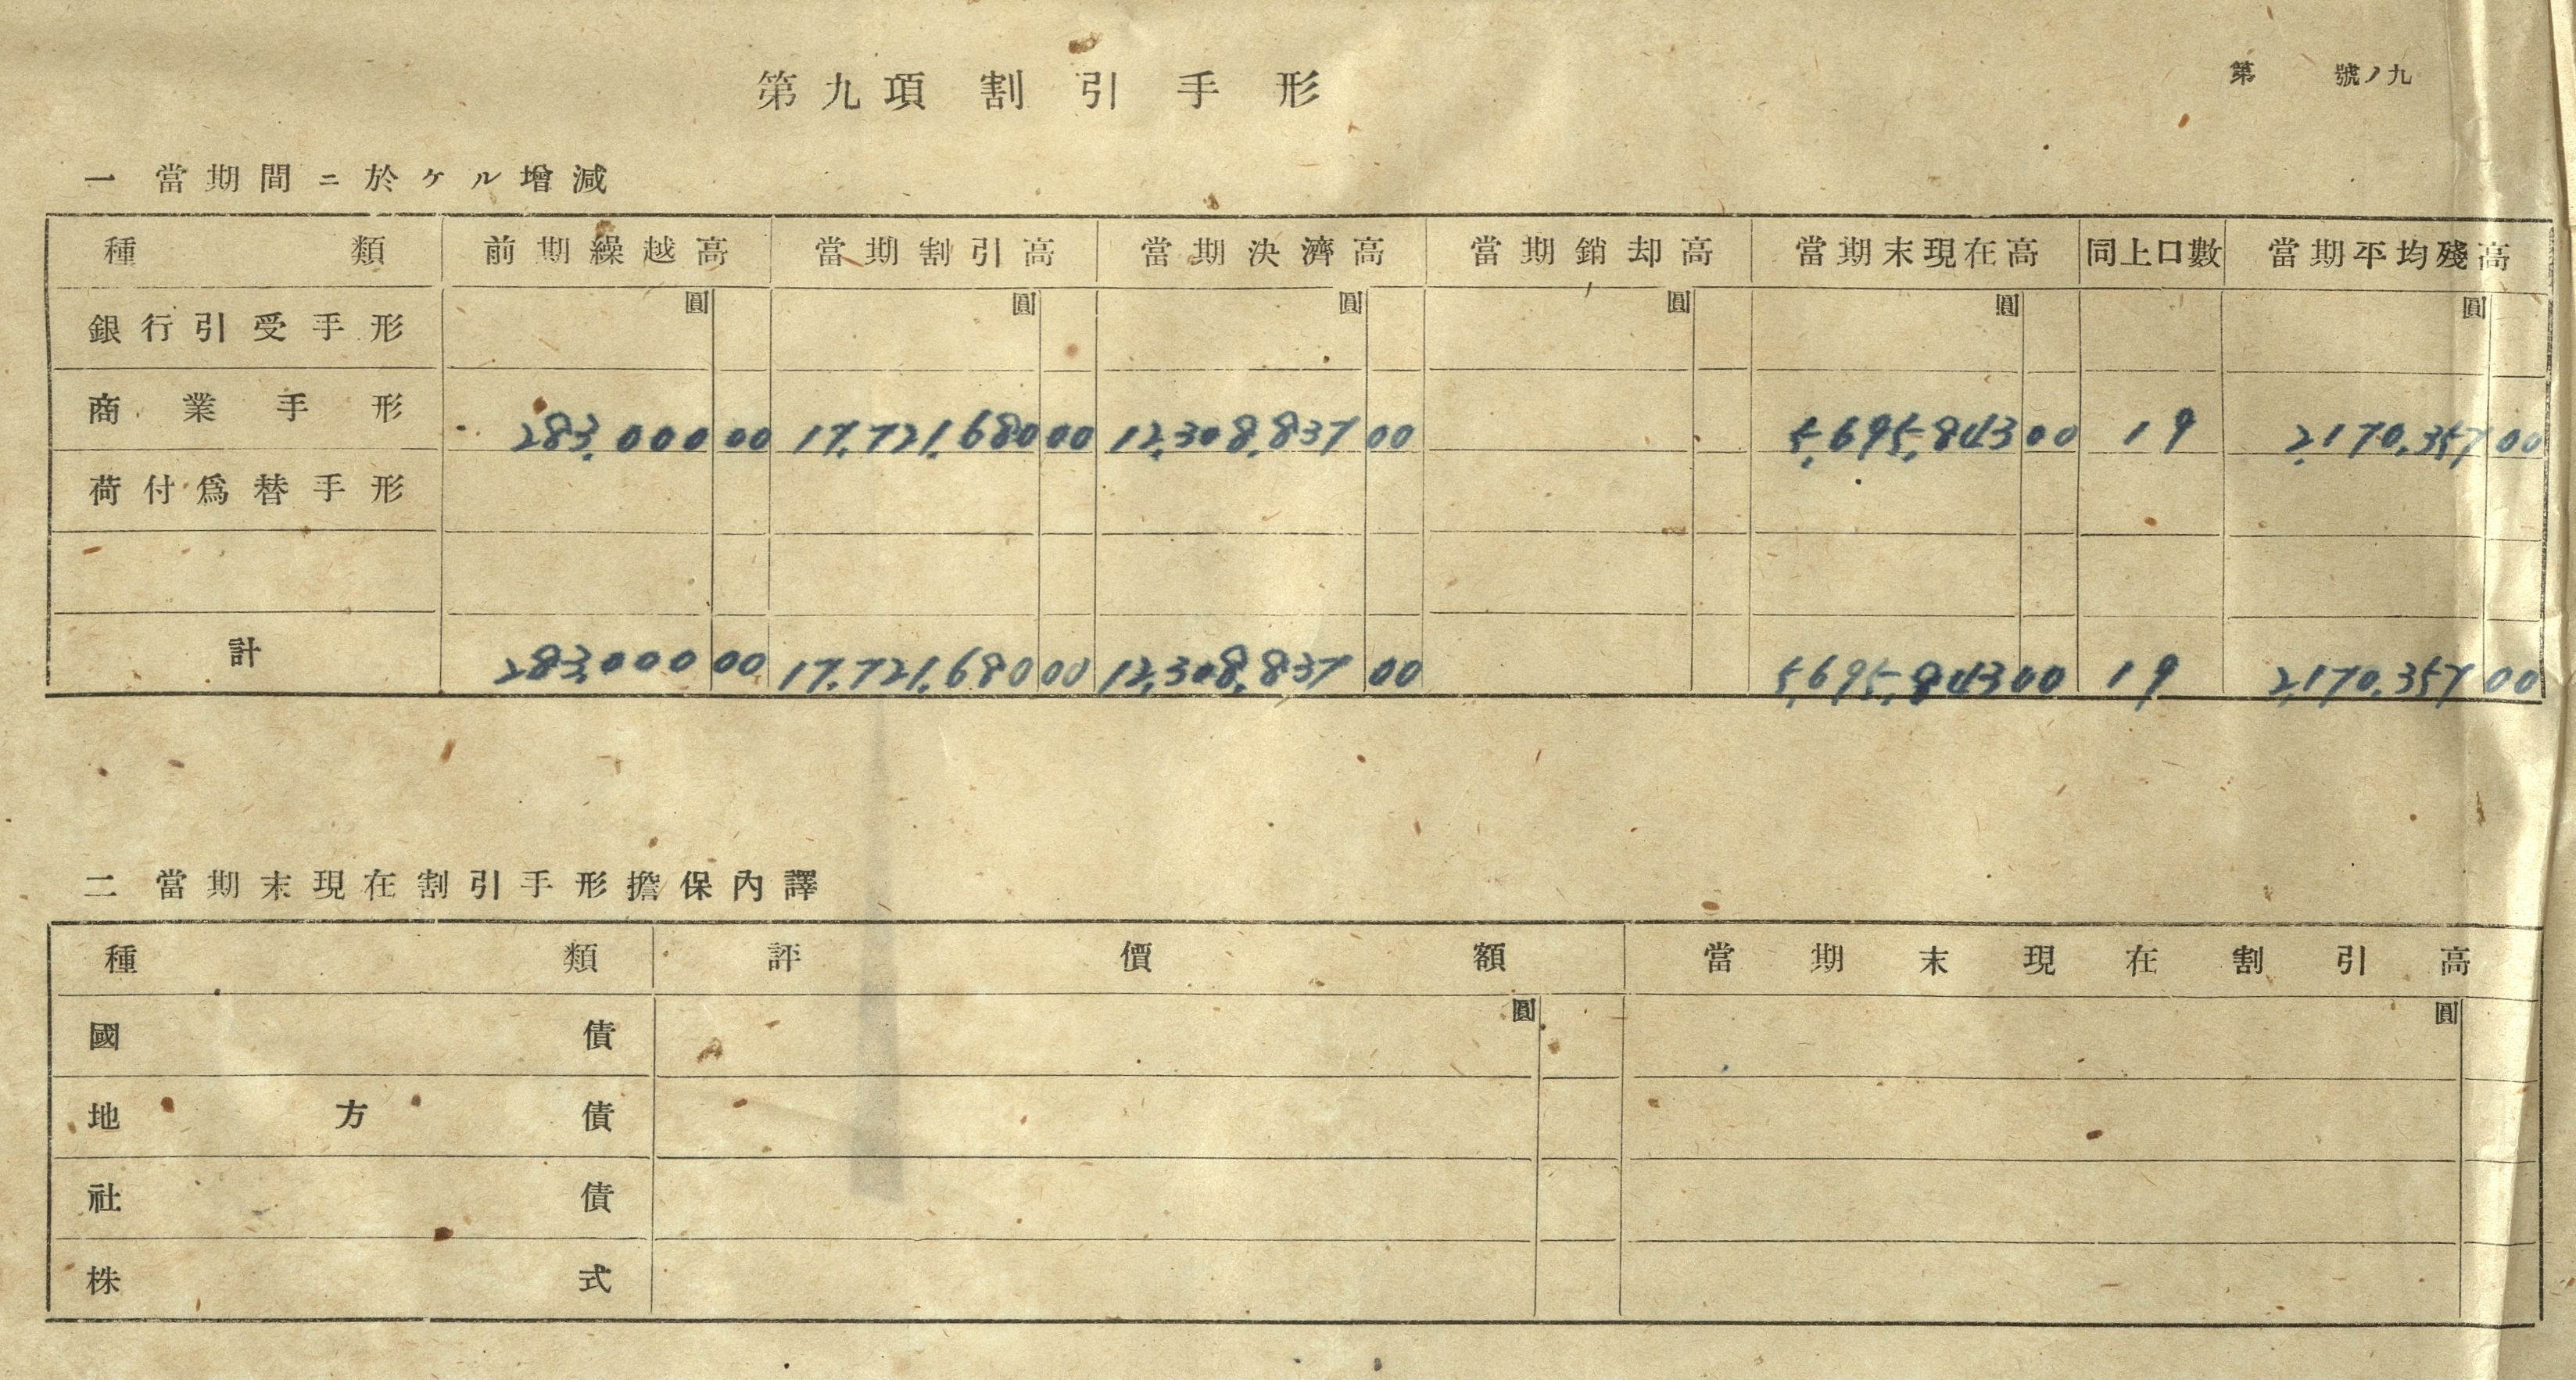 第　號ノ九
第九項 割引手形
一 當期間ニ於ケル增減
種類 前期繰越高 當期割引高 當期決濟高 當期銷却高 當期末現在高 同上口數 當期平均殘高
銀行引受手形 圓 圓 圓 圓 圓 圓
商業手形 283,000 00 17,721,680 00 12,308,837 00 5,695,843 00 19 2,170,357 00
荷付爲替手形
計 283,000 00 17,721,680 00 12,308,837 00 5,695,843 00 19 2,170,357 00
二 當期末現在割引手形擔保內譯
種類 評價額 當期末現在割引高
國債 圓 圓
地方債
社債
株式